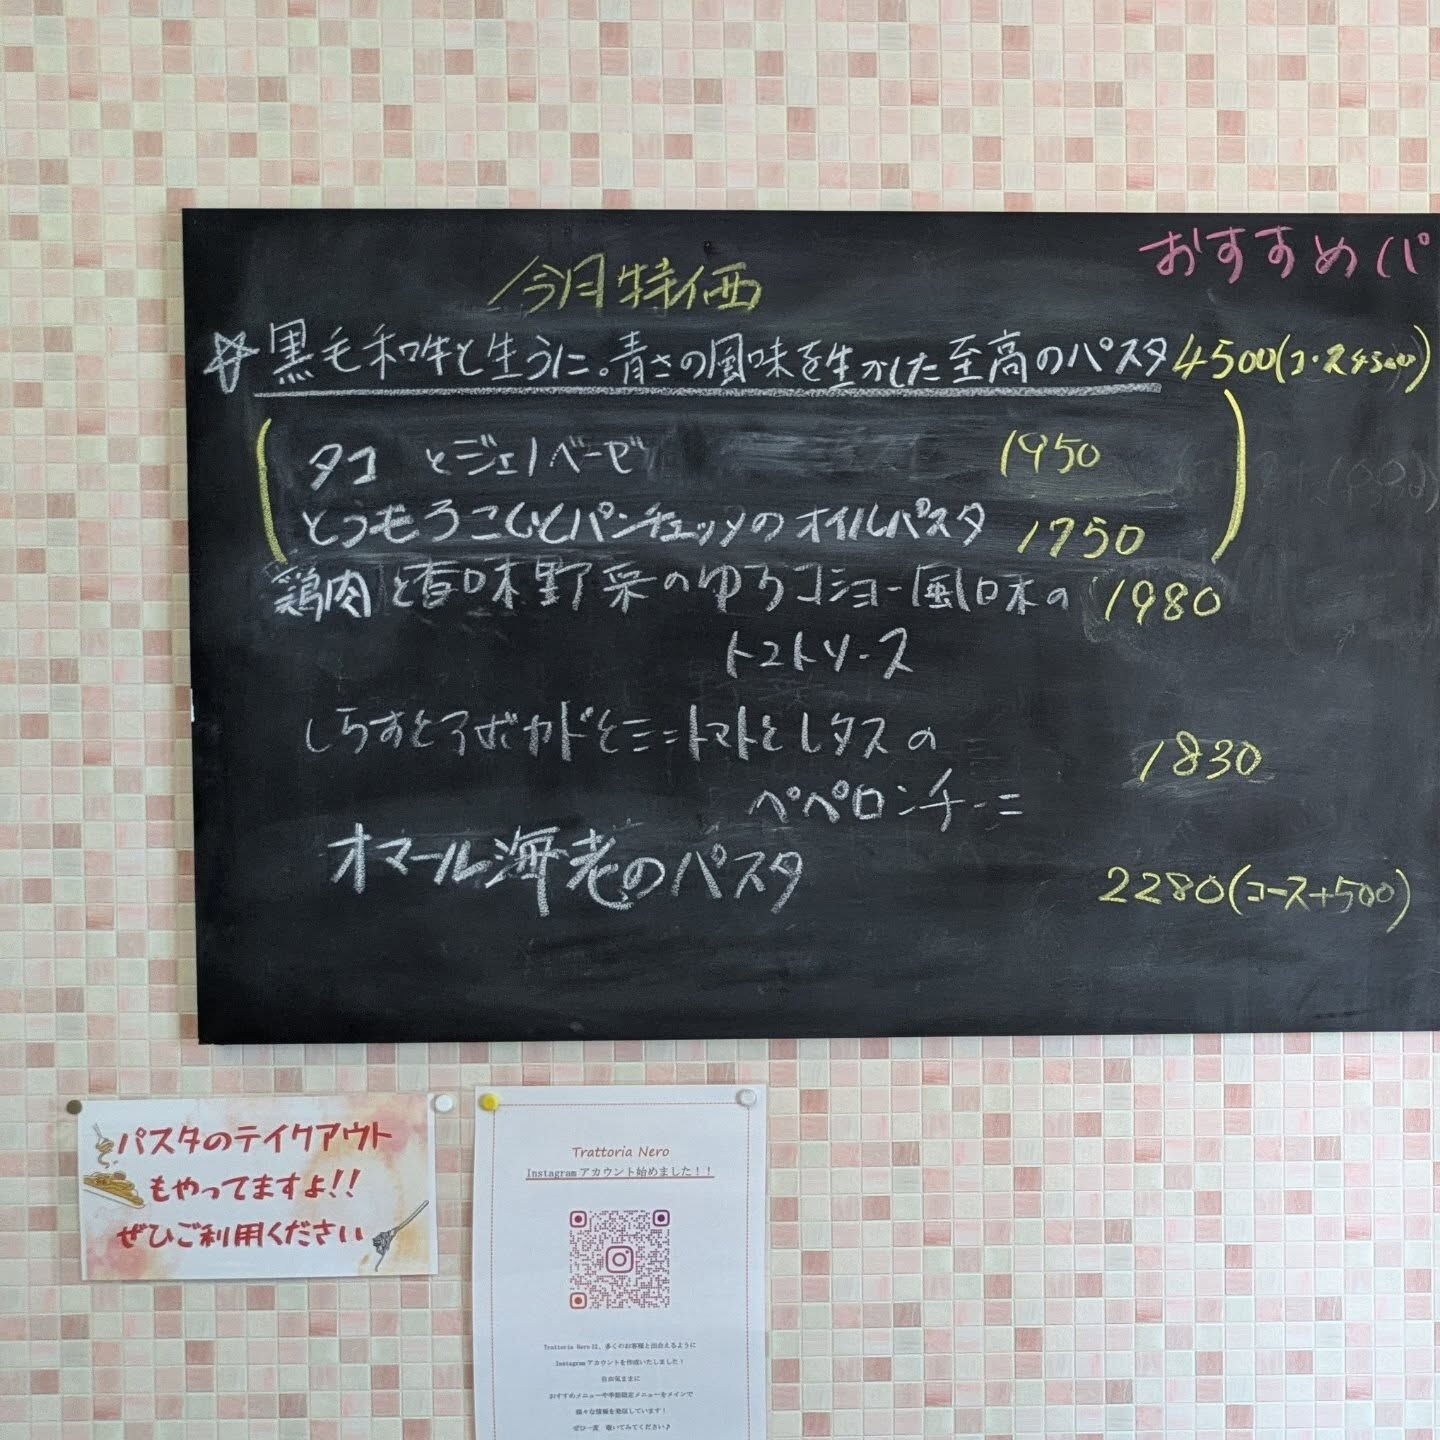 おすすめパ
今月特価
☆黒毛和牛と生うに。青さの風味を生かした至高のパスタ 4500(コース
タコ とジェノベーゼ 1950
とうもろこしとパンチェッタのオイルパスタ 1750
鶏肉と香味野菜のゆろコショー風味の 1980
トマトソース
しらすとアボカドとミニトマトとレタスの 1830
ペペロンチーニ
オマール海老のパスタ 2280(コース+500)
パスタのテイクアウト
もやってますよ!!
ぜひご利用ください
Trattoria Nero
Instagramアカウント始めました！！
Trattoria Neroは、多くのお客様と出会えるように
Instagramアカウントを作成いたしました！
自由気ままに
おすすめメニューや季節限定メニューをメインで
様々な情報を発信しています！
ぜひ一度 覗いてみてください♪